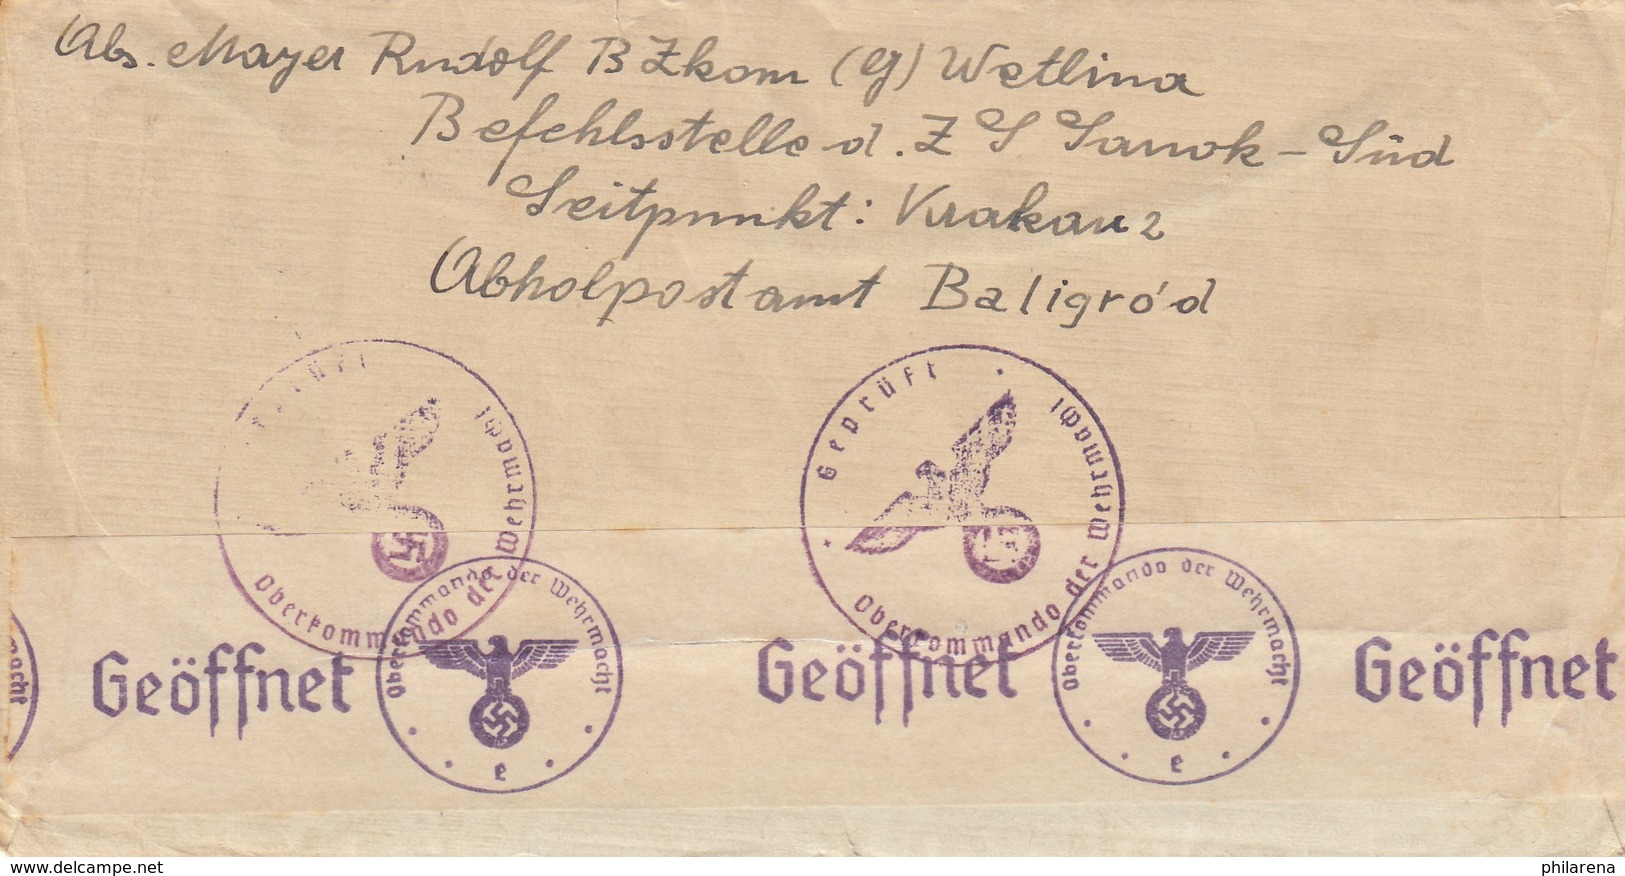 Abs. Mayer Rudolf BZkom (G) Wetlina
Befehlsstelle d. Z S Sanok - Süd
Leitpunkt: Krakau 2
Abholpostamt Baligród
Geprüft
Oberkommando der Wehrmacht
Geprüft
Oberkommando der Wehrmacht
macht
Geöffnet
Oberkommando der Wehrmacht
e
Geöffnet
Oberkommando der Wehrmacht
e
Geöffnet
www.delcampe.net
philarena